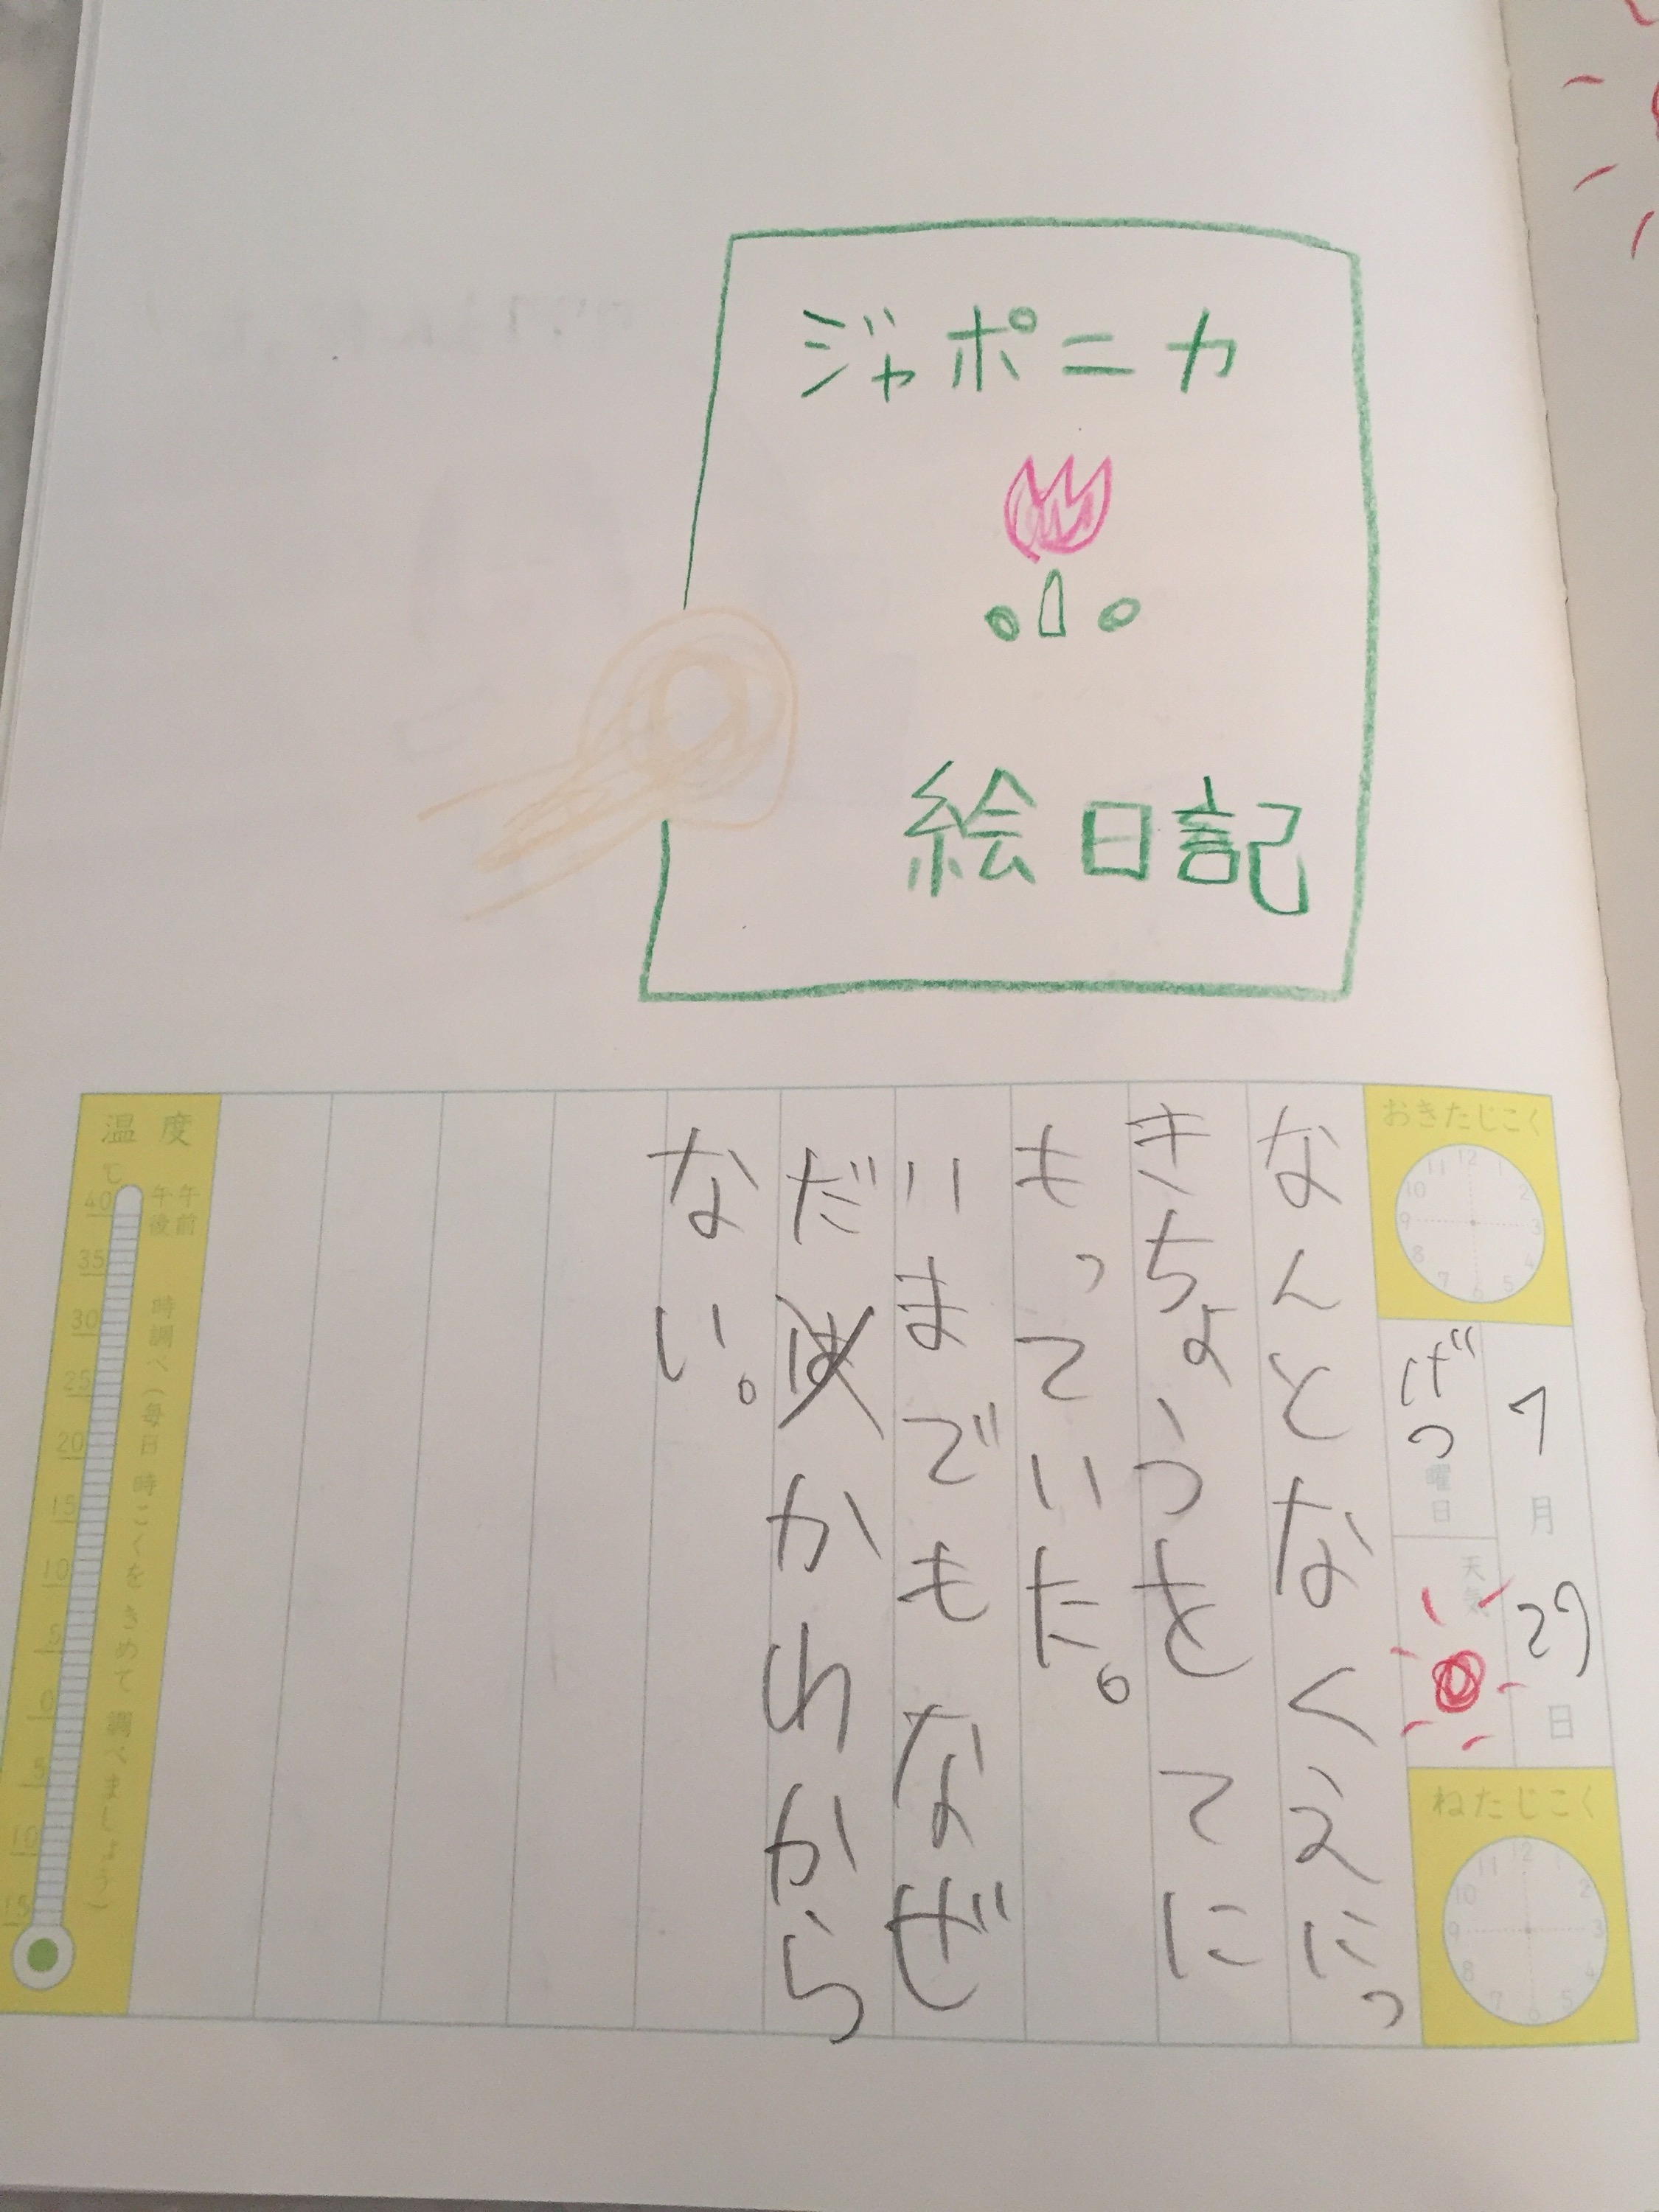 ジャポニカ
絵日記
おきたじこく
12
1
2
3
4
5
6
7
8
9
10
11
7月27日
げつ曜日
天気
ねたじこく
12
2
3
5
6
7
8
9
10
11
なんとなくえにっ
きちょうを てに
もっていた。
いまでも なぜ
だかわから
ない。
温度
℃
午前
午後
時調べ(毎日 時こくを きめて 調べましょう)
40
35
30
25
20
15
10
5
0
5
10
15